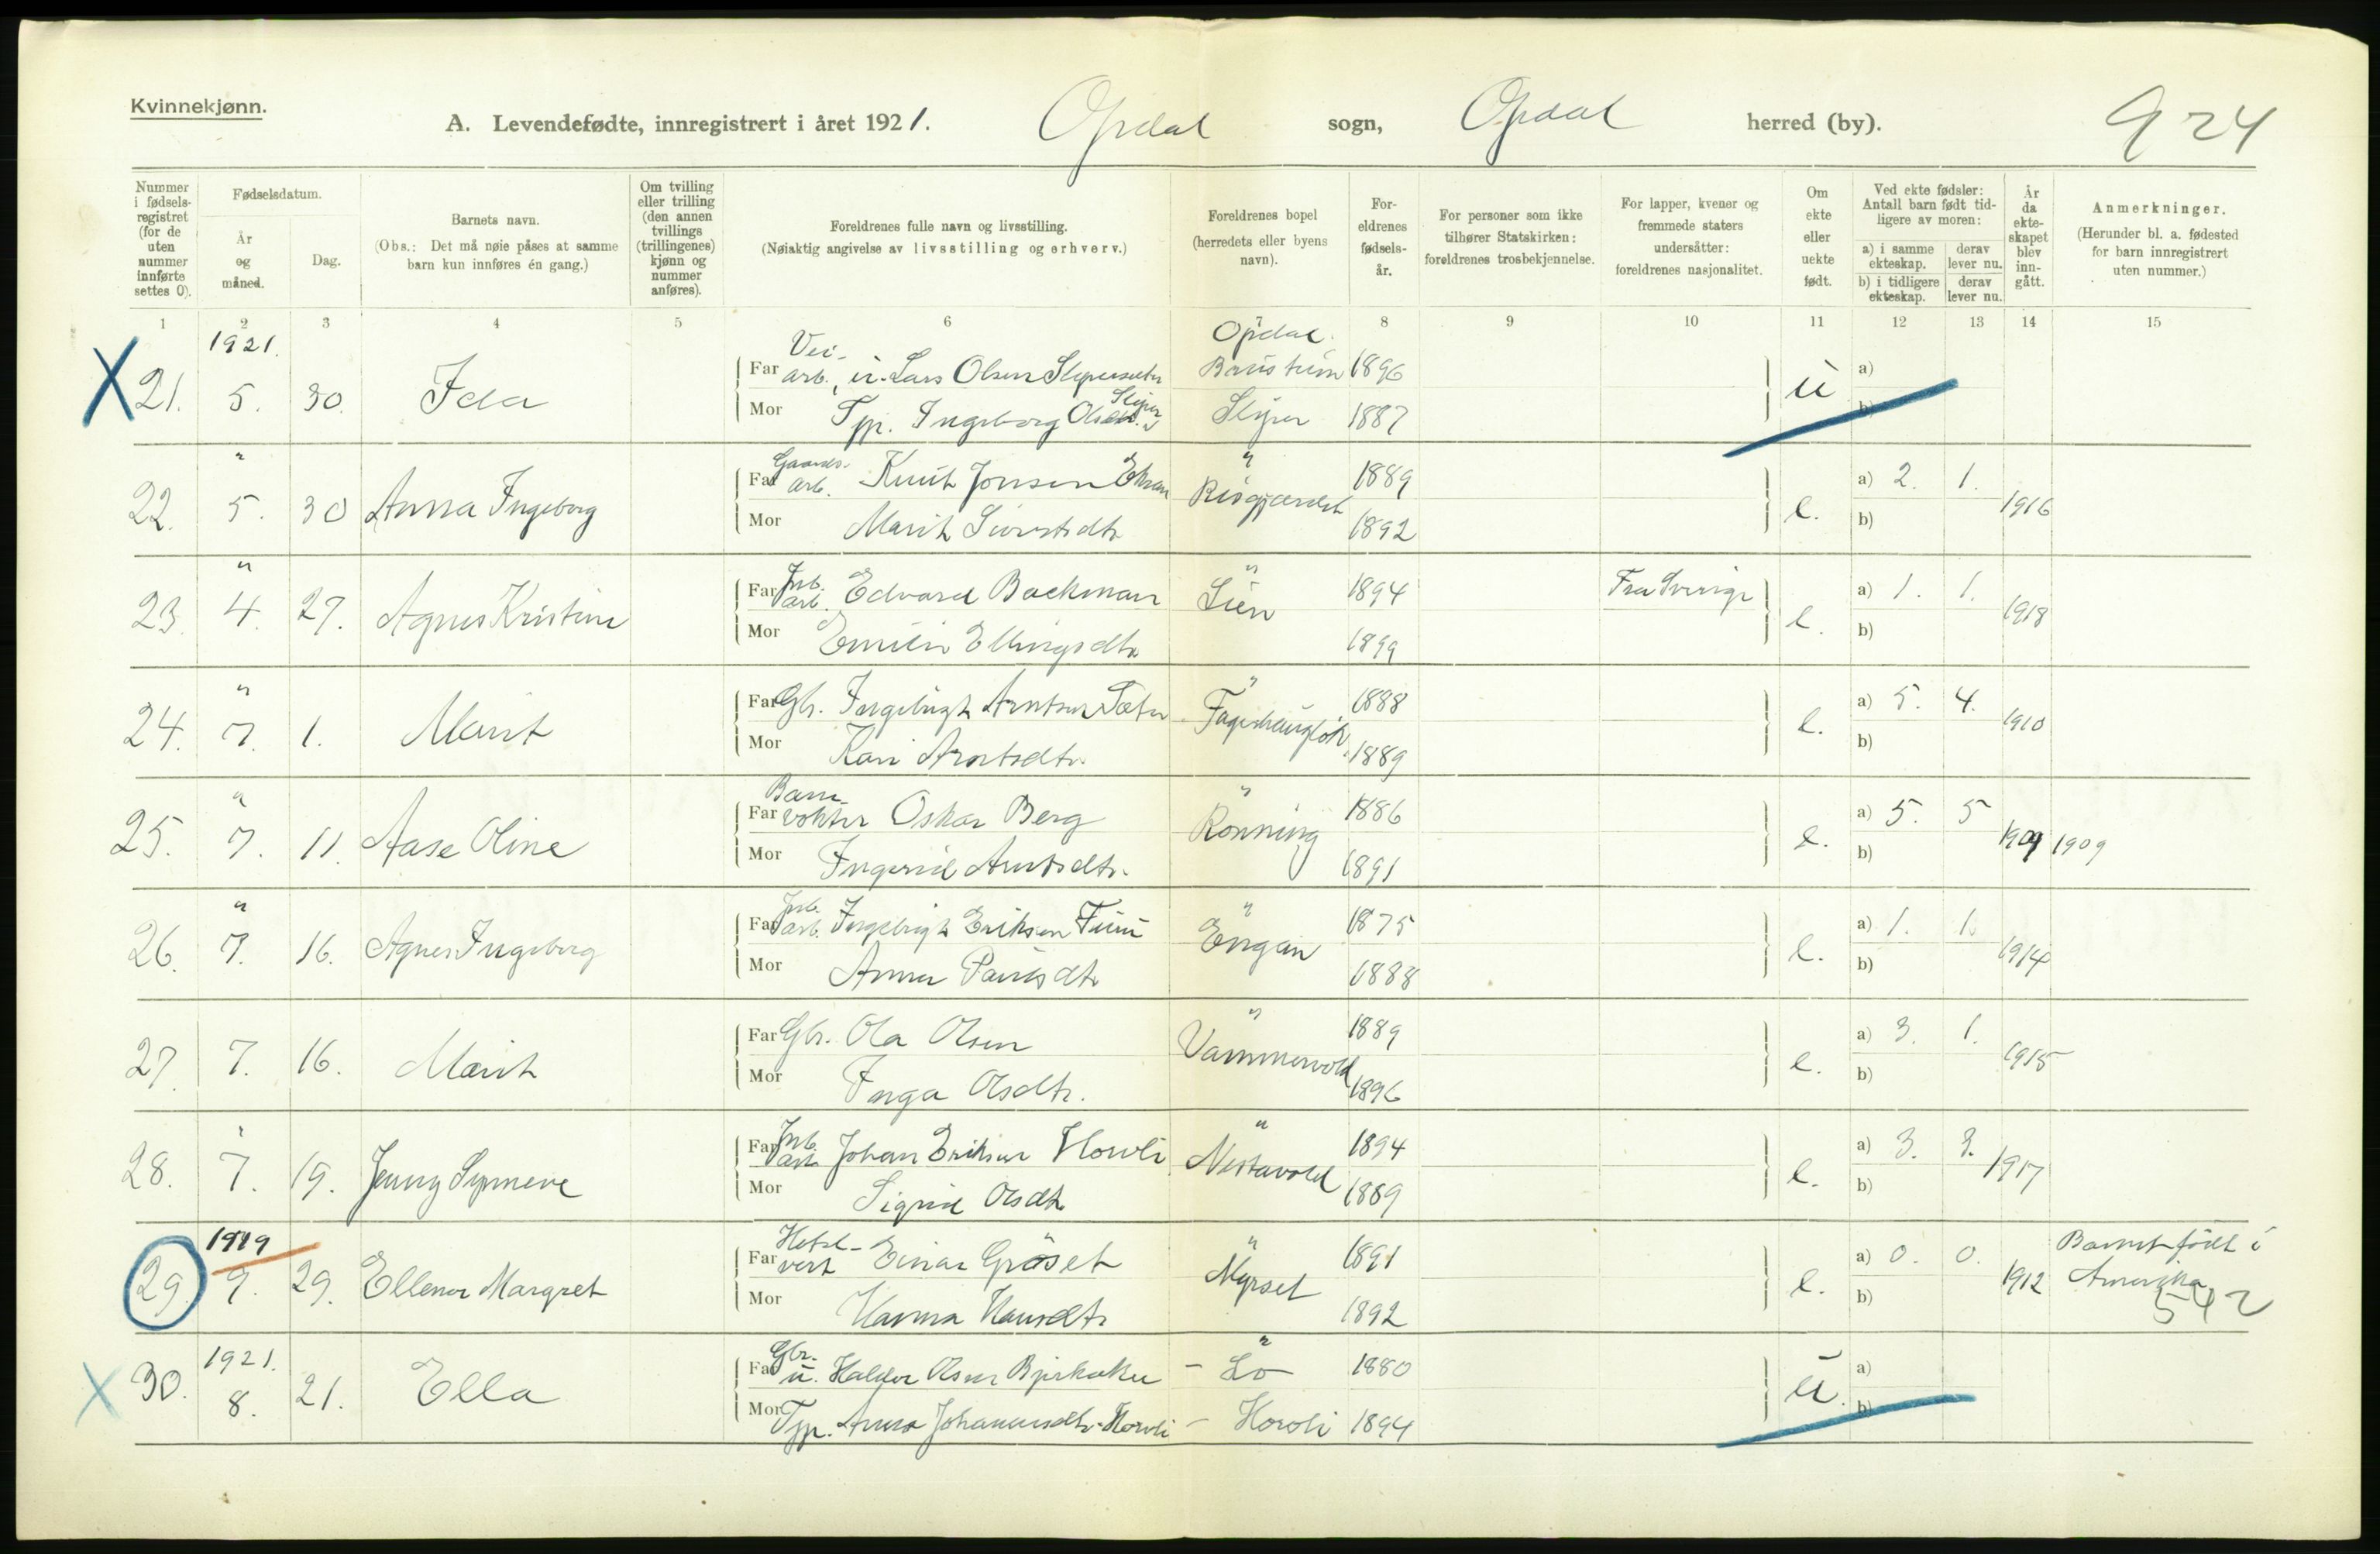 Kvinnekjønn.
A. Levendefødte, innregistrert i året 1921. Opdal sogn, Opdal herred (by). 924
Nummer i fødselsregistret (for de uten nummer innførte settes 0).
Fødselsdatum.
År og måned.
Dag.
Barnets navn.
(Obs.: Det må nøie påses at samme barn kun innføres én gang.)
Om tvilling eller trilling (den annen tvillings (trillingenes) kjønn og nummer anføres).
Foreldrenes fulle navn og livsstilling.
(Nøiaktig angivelse av livsstilling og erhverv.)
Foreldrenes bopel (herredets eller byens navn).
Foreldrenes fødselsår.
For personer som ikke tilhører Statskirken: foreldrenes trosbekjennelse.
For lapper, kvener og fremmede staters undersåtter: foreldrenes nasjonalitet.
Om ekte eller uekte født.
Ved ekte fødsler: Antall barn født tidligere av moren:
a) i samme ekteskap. derav lever nu.
b) i tidligere ekteskap. derav lever nu.
År da ekteskapet blev inngått.
Anmerkninger.
(Herunder bl. a. fødested for barn innregistrert uten nummer.)
1 2 3 4 5 6 7 8 9 10 11 12 13 14 15
1921. Opdal.
X 21. 5. 30. Ida Far Vei-arb., u. Lars Olsen 1896 u a)
Mor Tjp. Ingeborg Sliper 1887 b)
" "
22. 5. 30 Anna Ingeborg Far Gaards-arb. Knut Jonsen Risgjærdet 1889 e. a) 2. 1. 1916
Mor Marit Sivertsdtr 1892 b)
" "
23. 4. 27. Agnes Kristine Far Jnb. arb. Edvard Backman Lien 1894 Fra Sverige e. a) 1. 1. 1918
Mor Emilie Ellingsdtr 1899 b)
" "
24. 7. 1. Marit Far Gbr. Ingebrigt Arntsen Sæter 1888 e. a) 5. 4. 1910
Mor Kari Arntsdtr. 1889 b)
" "
25. 7. 11. Aase Oline Far Bane-vokter Oskar Berg Rønning 1886 e. a) 5. 5 1909 1909
Mor Ingerid Arntsdtr. 1891 b)
" "
26. 7. 16. Agnes Ingeborg Far Jnb. arb. Ingebrigt Eriksen Engan 1875 e. a) 1. 1. 1914
Mor Anna Paulsdtr 1888 b)
"
27. 7. 16. Marit Far Gbr. Ola Olsen Vammervold 1889 e. a) 3. 1. 1915
Mor Inga Olsdtr. 1896 b)
" "
28. 7. 19. Jenny Synneve Far Jnb. arb. Johan Eriksen Horvli Nestavold 1894 e. a) 3. 3. 1917
Mor Sigrid Olsdtr 1889 b)
1919 "
29. 9. 29. Ellenor Margret Far Hotel-vert Einar Grøset Myrset 1891 e. a) 0. 0. 1912 Barnet født i Amerika 542
Mor Hanna Hansdtr 1892 b)
1921. "
X 30. 8. 21. Ella Far Gbr. u. Haldor Olsen Bjerkaker - Lo 1880 u. a)
Mor Tjp. Anna Johannesdtr. Horvli - Horvli 1894 b)